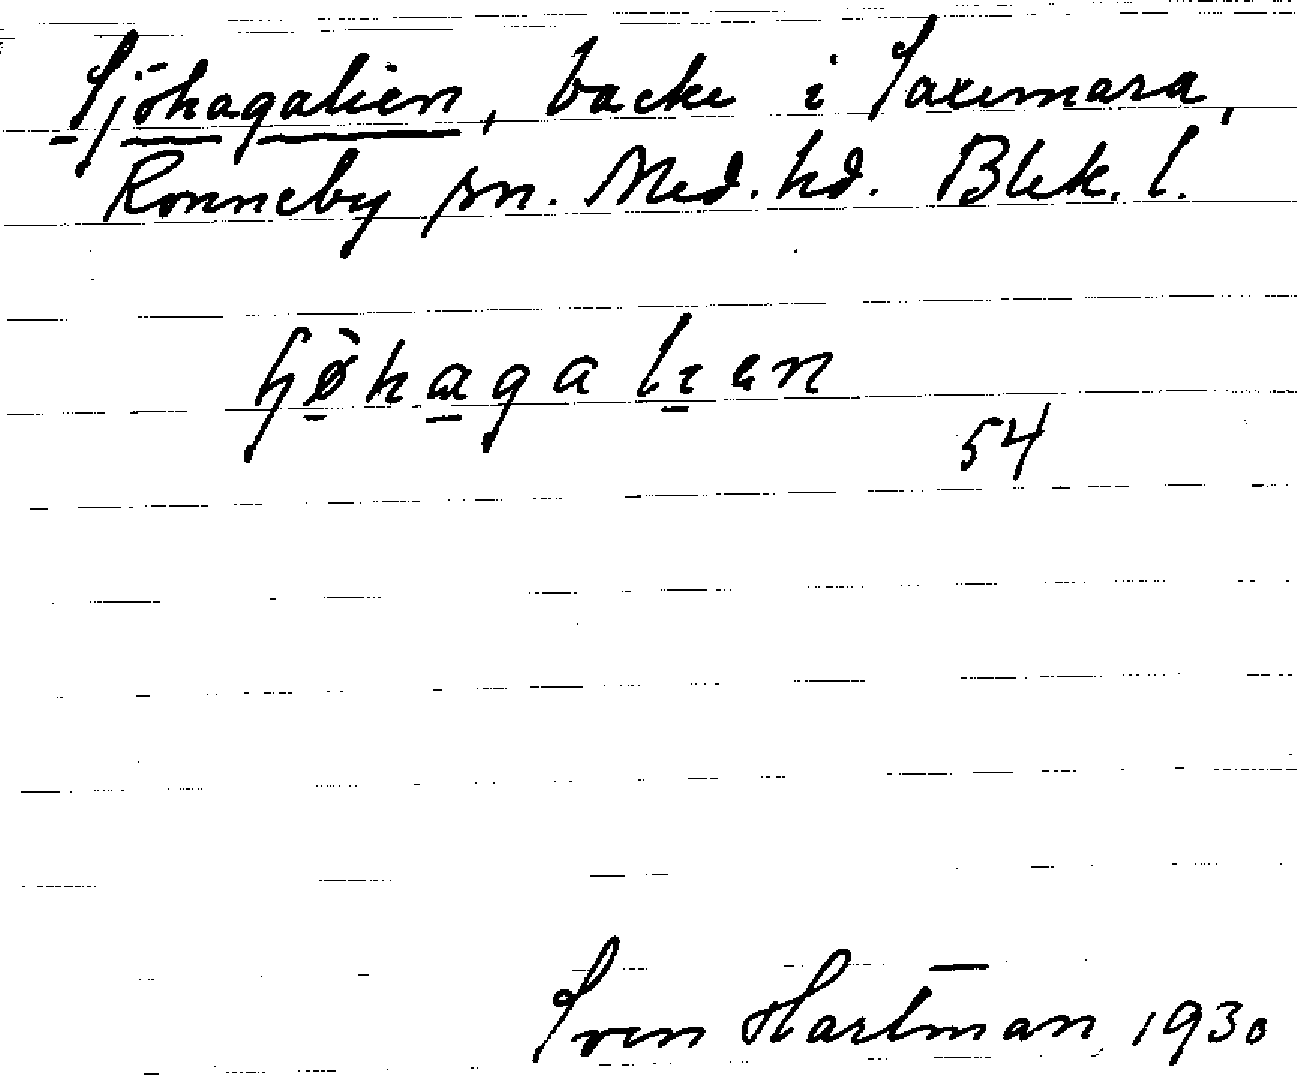 Sjöhagalien, backe i Saxemara,
Ronneby sn. Med. hd. Blek. l.
54
Sven Hartman 1930